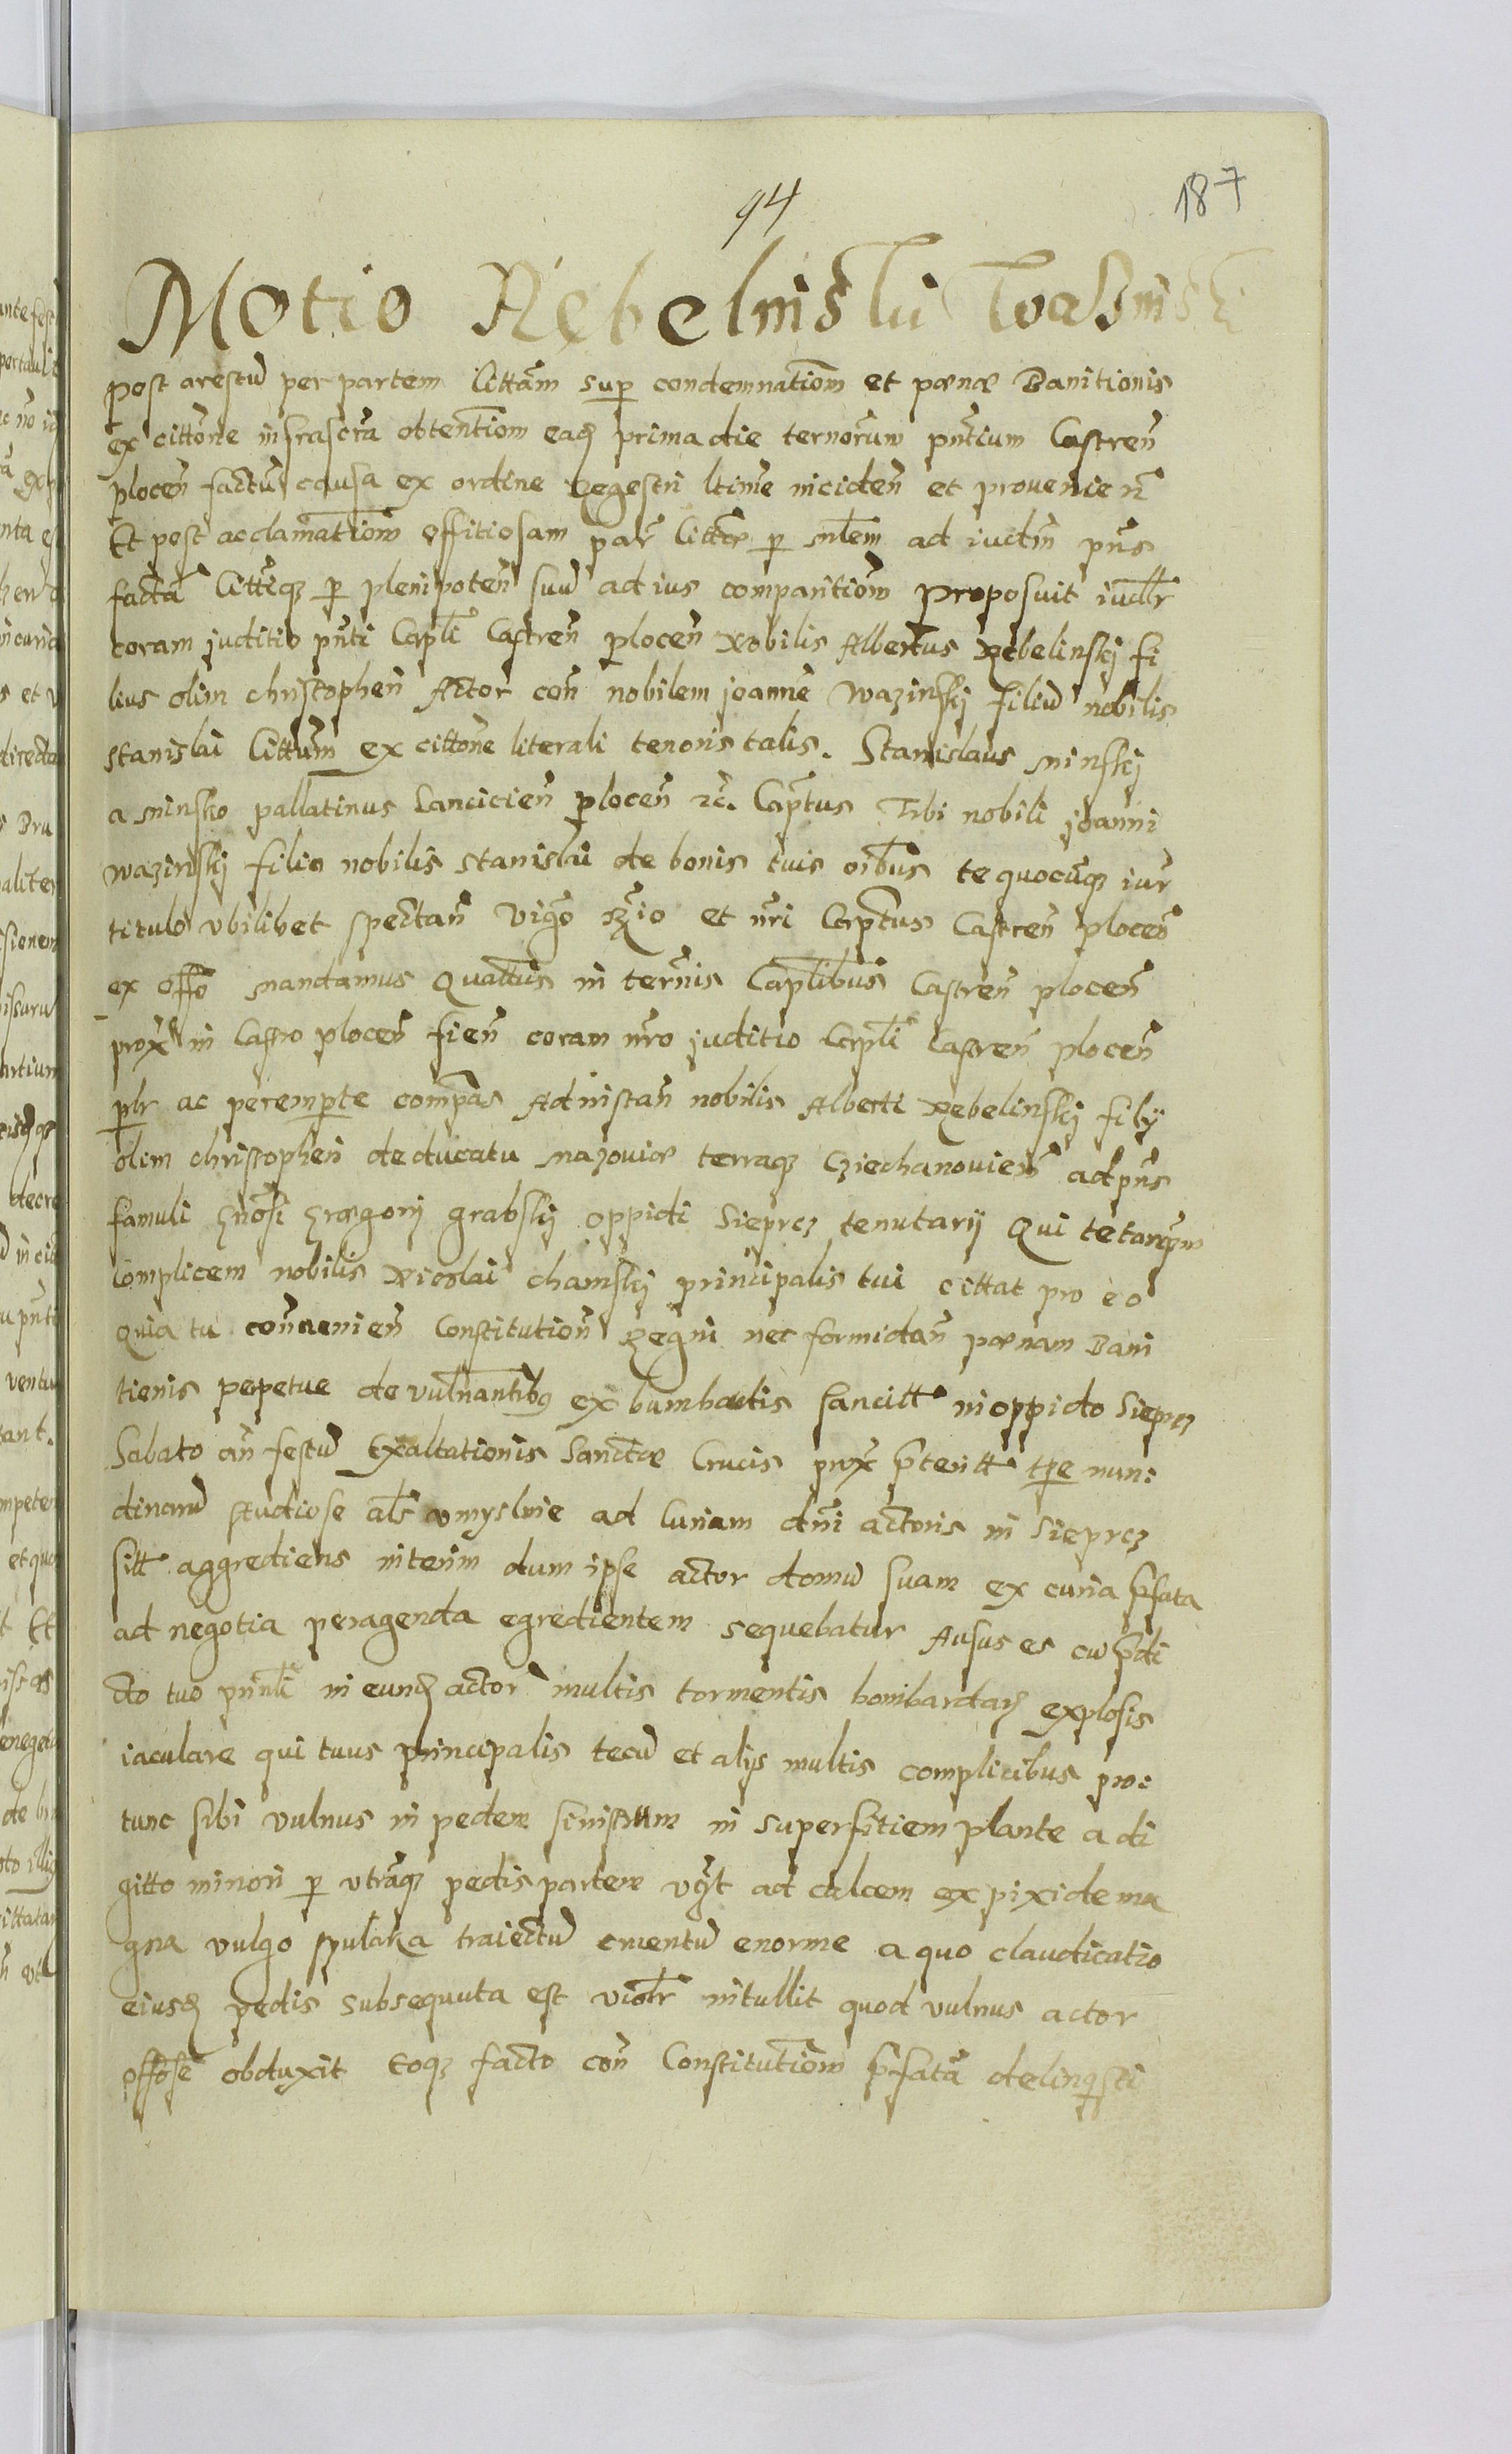 94
187
Motio Rębelinski Wazinski
post arestũ per partem Cittãm sup condemnatiom̃ et pœnæ Banitionis
ex cittõne infrascrã obtentiom̃ eadẽ prima die ternorum pñtium Castreñ
ploceñ factũ causa ex ordine Regestri ltime incideñ et provenieñ
Et post acclamatiom̃ offitiosam par̃ Cittæ p mlem̃ ad iudm̃ pñs
factã Cittæqȝ p plenipoteñ suũ ad ius comparitiom̃ proposuit iudlr
coram juditio pñti Caplĩ Castreñ ploceñ Nobilis Albertus Rebelinskj fi
lius olim christopheri Actor coñ nobilem joannẽ Wazinskj filiũ nobilis
stanislai Cittum̃ ex cittone literali tenoris talis. Stanislaus Minskj
a Minsko pallatinus Lancicieñ ploceñ rc̃. Cap̃tus Tibi nobili joanni
Wazinskj filio nobilis stanislai de bonis tuis oibus te quocũqȝ iur
titulo ubilibet spectañ Vigõ et nri Captus Castreñ ploceñ
ex offõ Mandamus Quattus in terñis Caplibus Castreñ ploceñ
prox̃ in Castro ploceñ fieñ coram nrõ juditio Caplĩ Castreñ ploceñ
plr ac perempte compas Ad instañ nobilis Alberti Rebelinskj filij
olim christopheri de ducatu Mazoviæ terraqȝ Cziechanovieñ ad pñs
famuli Gnõsi Grægorij grabskj oppidi Sieprcz tenutarij Qui te tanqm̃
Complicem nobilis Nicolai chamskj principalis tui cittat pro eo
Quia tu Constitutioñ Regni nec formidañ pœnam Bani
tionis perpetue de vulnãntibȝ ex bumbardis sancitt in oppido Sieprcz
Sabato añ festũ Exaltationis Sanctæ Crucis prox̃ p̃teritt tpe nun:
dinarũ studiose als̃ umyslnie ad Curiam dñi actoris in Sieprcz
sitt aggrediens interim dum ipse actor domũ suam ex curia p̃fata
ad negotia peragenda egredientem sequebatur Ausus es cũ p̃di
cto tuo pñnlĩ in eundẽ actor̃ multis tormentis bombardarẽ explosis
iaculare qui tuus principalis tecũ et alijs multis complicibus pro:
tunc sibi vulnus in pedem sinistrum in superfitiem plante a di
gitto minori p utrãqȝ pedis partem vgt ad calcem ex pixide ma
gna vulgo spulaka traiectũ cruentũ enorme a quo claudicatio
eiusdẽ pedis subsequuta est violr intullit quod vulnus actor
offosẽ obduxit Eoqȝ facto coñ Constitutiom̃ p̃fatã delinqisti